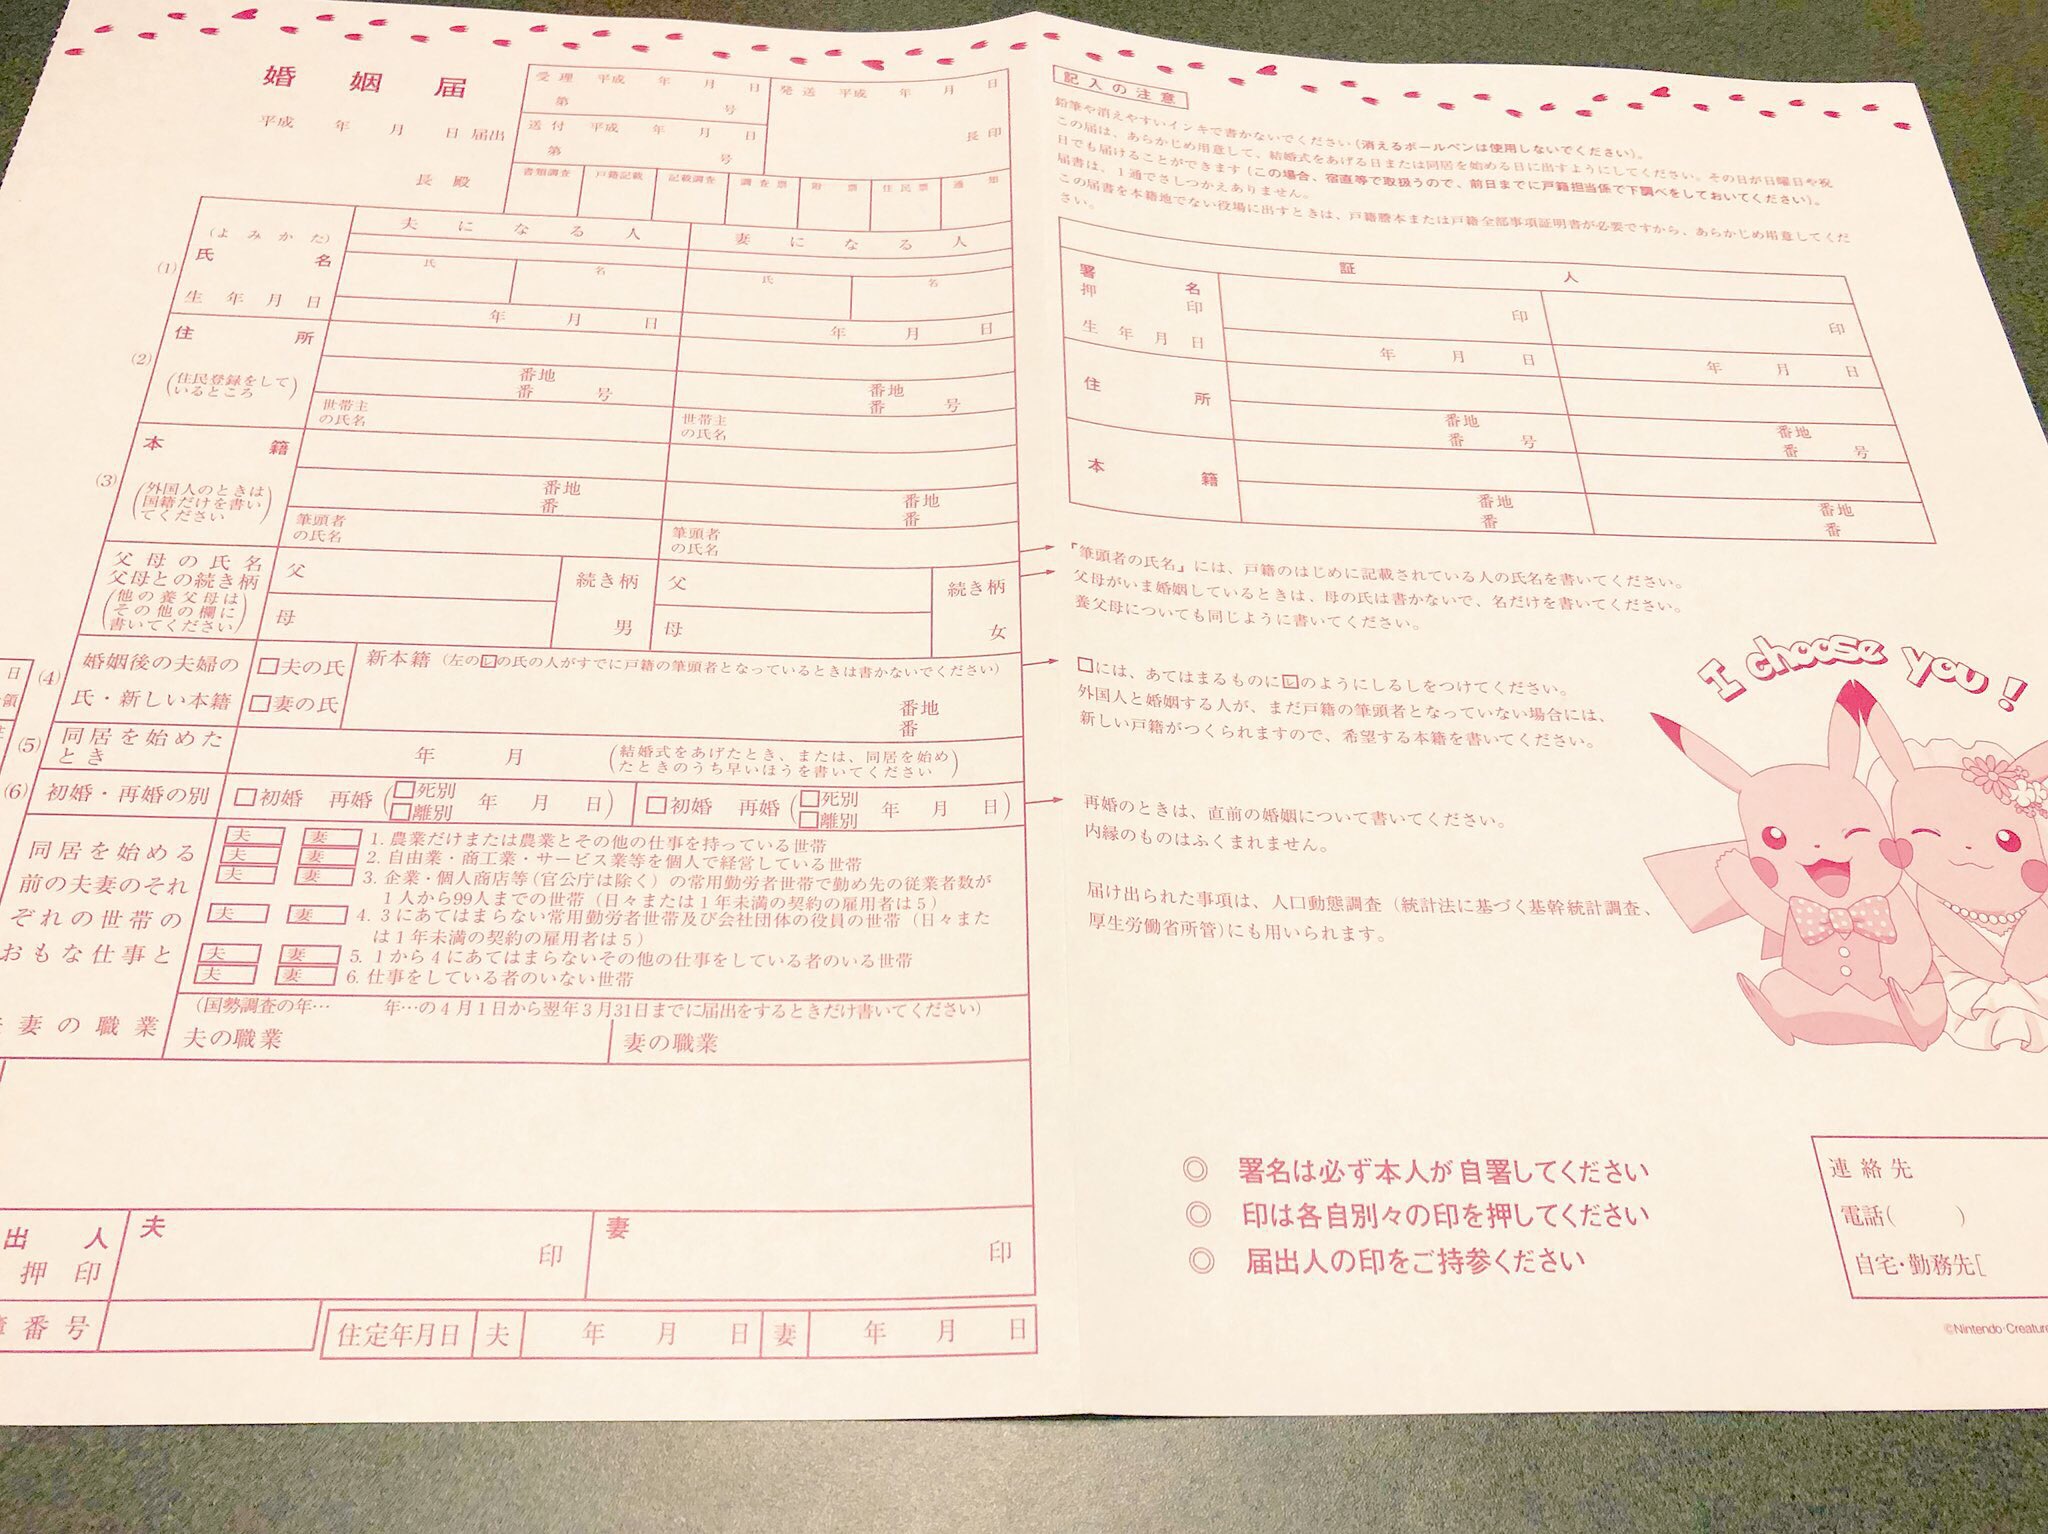 婚姻届
平成 年 月 日 届出
長 殿
受理 平成 年 月 日
第 号
送付 平成 年 月 日
第 号
発送 平成 年 月 日
長印
書類調査 戸籍記載 記載調査 調査票 附票 住民票 通知
夫になる人 妻になる人
(1)
(よみかた)
氏名
氏 名 氏 名
生年月日
年 月 日 年 月 日
(2)
住所
(住民登録をして
いるところ)
番地
番 号
番地
番 号
世帯主
の氏名
世帯主
の氏名
(3)
本籍
(外国人のときは
国籍だけを書い
てください)
番地
番
番地
番
筆頭者
の氏名
筆頭者
の氏名
父母の氏名
父母との続き柄
(他の養父母は
その他の欄に
書いてください)
父 続き柄 父 続き柄
母 男 母 女
(4)
婚姻後の夫婦の
氏・新しい本籍
□夫の氏
□妻の氏
新本籍(左の☑の氏の人がすでに戸籍の筆頭者となっているときは書かないでください)
番地
番
(5)
同居を始めた
とき
年 月
(結婚式をあげたとき、または、同居を始め
たときのうち早いほうを書いてください)
(6)
初婚・再婚の別
□初婚 再婚(□死別 □離別 年 月 日)
□初婚 再婚(□死別 □離別 年 月 日)
同居を始める
前の夫妻のそれ
ぞれの世帯の
おもな仕事と
夫 妻 1. 農業だけまたは農業とその他の仕事を持っている世帯
夫 妻 2. 自由業・商工業・サービス業等を個人で経営している世帯
夫 妻 3. 企業・個人商店等(官公庁は除く)の常用勤労者世帯で勤め先の従業者数が
1人から99人までの世帯(日々または1年未満の契約の雇用者は5)
夫 妻 4. 3にあてはまらない常用勤労者世帯及び会社団体の役員の世帯(日々また
は1年未満の契約の雇用者は5)
夫 妻 5. 1から4にあてはまらないその他の仕事をしている者のいる世帯
夫 妻 6. 仕事をしている者のいない世帯
妻の職業
(国勢調査の年… 年…の4月1日から翌年3月31日までに届出をするときだけ書いてください)
夫の職業 妻の職業
出人
押印
夫 印 妻 印
番号
住定年月日 夫 年 月 日 妻 年 月 日
日
領
記入の注意
鉛筆や消えやすいインキで書かないでください(消えるボールペンは使用しないでください)。
この届は、あらかじめ用意して、結婚式をあげる日または同居を始める日に出すようにしてください。その日が日曜日や祝
日でも届けることができます(この場合、宿直等で取扱うので、前日までに戸籍担当係で下調べをしておいてください)。
届書は、1通でさしつかえありません。
この届書を本籍地でない役場に出すときは、戸籍謄本または戸籍全部事項証明書が必要ですから、あらかじめ用意してくだ
さい。
証人
署名
押印
印 印
生年月日
年 月 日 年 月 日
住所
番地
番 号
番地
番 号
本籍
番地
番
番地
番
「筆頭者の氏名」には、戸籍のはじめに記載されている人の氏名を書いてください。
父母がいま婚姻しているときは、母の氏は書かないで、名だけを書いてください。
養父母についても同じように書いてください。
□には、あてはまるものに☑のようにしるしをつけてください。
外国人と婚姻する人が、まだ戸籍の筆頭者となっていない場合には、
新しい戸籍がつくられますので、希望する本籍を書いてください。
再婚のときは、直前の婚姻について書いてください。
内縁のものはふくまれません。
届け出られた事項は、人口動態調査(統計法に基づく基幹統計調査、
厚生労働省所管)にも用いられます。
I choose you!
◎ 署名は必ず本人が自署してください
◎ 印は各自別々の印を押してください
◎ 届出人の印をご持参ください
連絡先
電話( )
自宅・勤務先[
©Nintendo・Creature